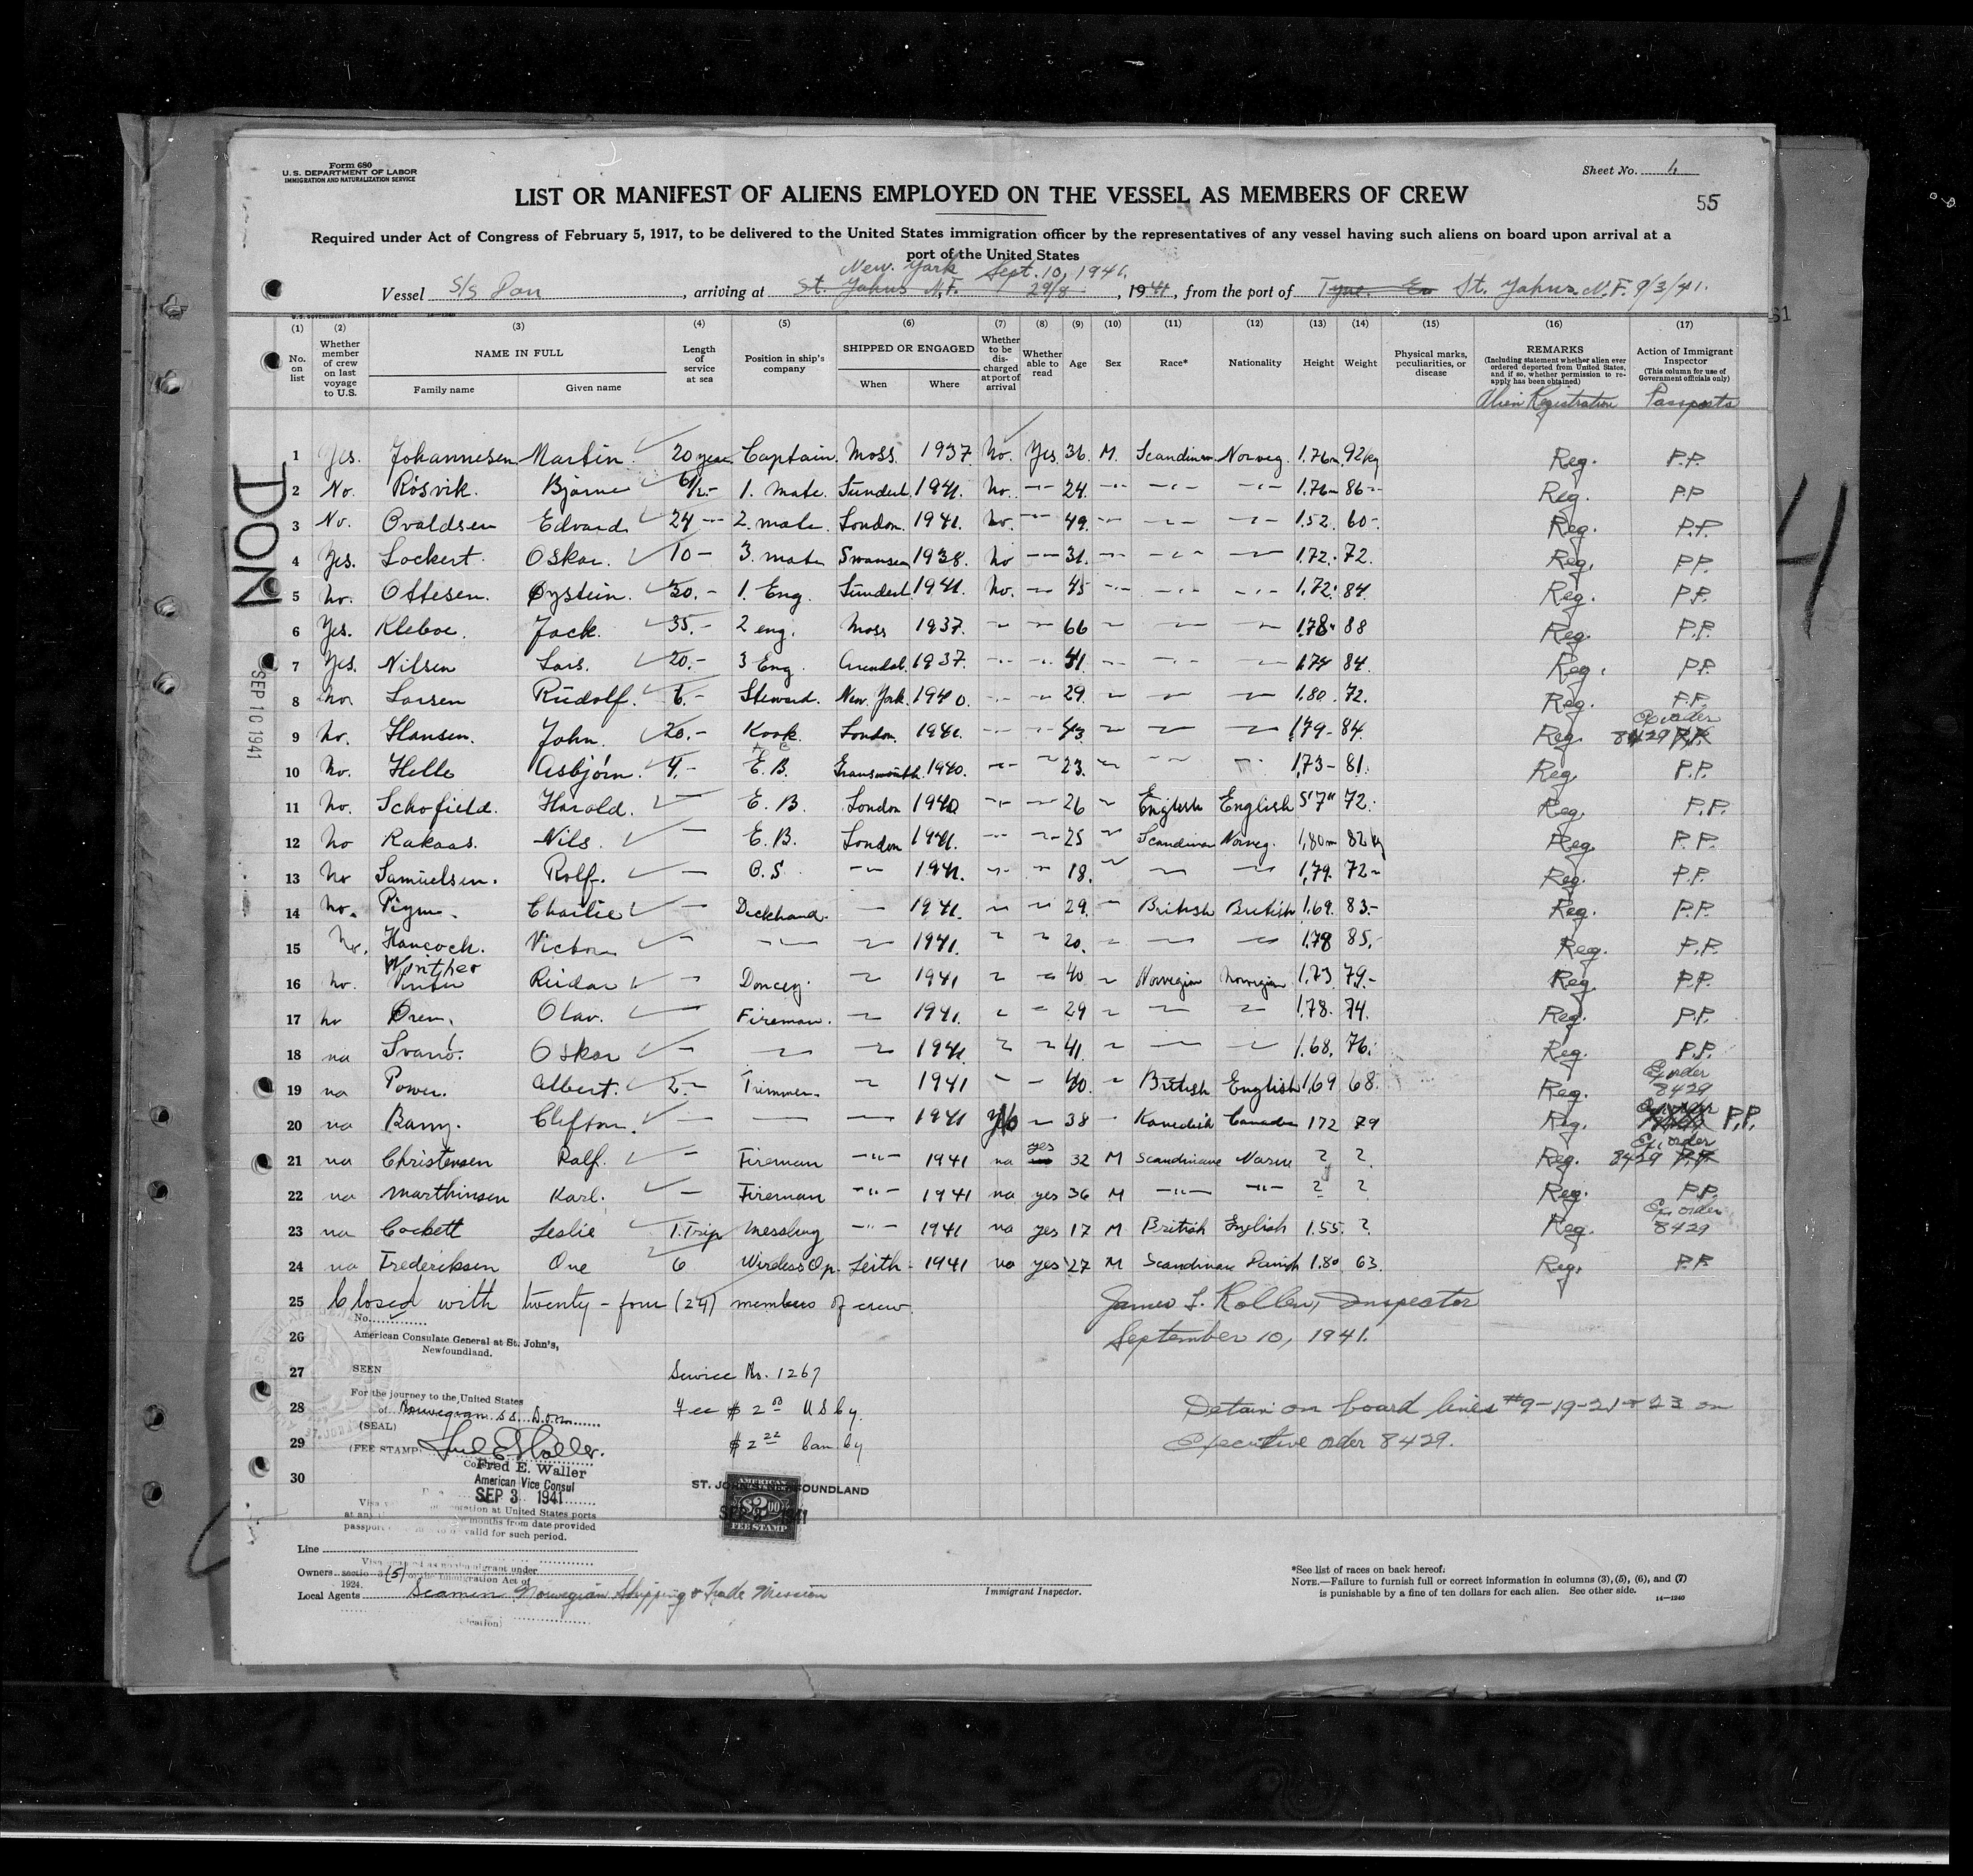 Form 680
U.S. DEPARTMENT OF LABOR
IMMIGRATION AND NATURALIZATION SERVICE
Sheet No. 1
LIST OR MANIFEST OF ALIENS EMPLOYED ON THE VESSEL AS MEMBERS OF CREW
55
Required under Act of Congress of February 5, 1917, to be delivered to the United States immigration officer by the representatives of any vessel having such aliens on board upon arrival at a
port of the United States
New York Sept. 10, 1941.
Vessel S/s Don, arriving at St. Johns N.F. 29/8, 1941, from the port of Tyne. St. Johns. N.F. 9/3/41.
51
U.S. GOVERNMENT PRINTING OFFICE 14-1240
(1) (2) (3) (4) (5) (6) (7) (8) (9) (10) (11) (12) (13) (14) (15) (16) (17)
No. on list
Whether member of crew on last voyage to U.S.
NAME IN FULL
Family name Given name
Length of service at sea
Position in ship's company
SHIPPED OR ENGAGED
When Where
Whether to be discharged at port of arrival
Whether able to read
Age
Sex
Race*
Nationality
Height
Weight
Physical marks, peculiarities, or disease
REMARKS
(Including statement whether alien ever ordered deported from United States, and if so, whether permission to reapply has been obtained)
Alien Registration
Action of Immigrant Inspector
(This column for use of Government officials only)
Passports
DON
SEP 10 1941
4
1 Yes. Johannesen Martin 20 years Captain. Moss. 1937 No. Yes 36. M. Scandinav Norweg. 1.76m 92kg Reg. P.P.
2 No. Rösvik. Bjarne 6 1/2 - 1. mate. Sunderl. 1941. No. -"- 24. -"- -"- -"- 1.76- 86-- Reg. P.P
3 No. Ovaldsen Edvard 24 -- 2. mate. London. 1941. No. -"- 49. -- -"- -"- 1.52. 60-. Reg. P.P.
4 Yes. Lockert. Oskar. 10 - 3. mate Swansea 1938. No -- 31. -"- -"- -"- 1.72. 72. Reg. P.P.
5 No. Ottesen. Øystein. 30. - 1. Eng. Sunderl. 1941. No. -- 45 -"- -"- -"- 1.72. 84. Reg. P.P.
6 Yes. Kleboe. Jack. 35. - 2 eng. Moss 1937. - - 66 - - - 1.78. 88 Reg. P.P.
7 Yes. Nilsen Lars. 20. - 3 Eng. Arendal. 1937. -"- -"- 41. -- -"- -"- 1.74 84. Reg. P.P.
8 No. Larsen Rudolf. 6. - Steward. New. York. 1940. -"- - 29. - - - 1.80. 72. Reg. P.P.
9 No. Hansen. John. 20. - Kook. London. 1941. -"- -"- 43. - - - 1.79- 84. Reg. Ex order 8429 P.P.
10 No. Helle Asbjørn. 4. - E. B. 1940. -"- - 23. - -"- " 1,73- 81. Reg. P.P.
11 No. Schofield. Harald. - E. B. London 1940 -"- - 26 - English English 5'7" 72. Reg. P.P.
12 No Rakaas. Nils. - E. B. London 1941. -"- -- 25 - Scandinav Norweg. 1,80m 82kg Reg. P.P.
13 No Samuelsen. Rolf. - O.S. -- 1941. -"- - 18. - - - 1,79. 72- Reg. P.P.
14 No. Pigm. Charlie - Deckhand. - 1941. - - 29. - British British 1.69. 83.- Reg. P.P.
15 No. Hancock. Victor - -"- - 1941. - - 20. - - - 1.78 85.- Reg. P.P.
16 No. Winther Reidar - Doncey. - 1941 - - 40 - Norwegian Norwegian 1.73. 79.- Reg. P.P.
17 No Ören. Olav. - Fireman. - 1941. - - 29 - - - 1.78. 74. Reg. P.P.
18 na Svanö. Oskar - - - 1941. - - 41. - - - 1.68. 76. Reg. P.P.
19 na Power. Albert. 2.- Trimmer. - 1941 - - 40. - British English 1.69 68. Reg. Ex order 8429
20 na Barry. Clifton. - - - 1941 - 38 - Kanedish Canadia 172 79 Reg. P.P.
21 na Christensen Ralf. - Fireman -"- 1941 na yes 32 M Scandinave ? ? Reg. Ex. order 8429 P.P.
22 na Marthinsen Karl. - Fireman -"- 1941 na yes 36 M -"- -"- ? ? Reg. P.P.
23 na Cockett Leslie 1.Trip Messbuy -"- 1941 na yes 17 M British English 1.55. ? Reg. Ex order 8429
24 na Frederiksen Ove 6 Wireless Op. Leith - 1941 na yes 27 M Scandinave Danish 1.80. 63. Reg. P.P.
25 Closed with twenty-four (24) members of crew. James L. Rollen, Inspector
26 September 10, 1941.
No.
American Consulate General at St. John's,
Newfoundland.
27 SEEN Service No. 1267
For the journey to the United States
28 of Norwegian s.s. Don Fee $ 2 00 US Cy. Detain on board lines #9-19-21 & 23 on
(SEAL)
29 (FEE STAMP) $ 2 22 Can Cy Executive order 8429.
Fred E. Waller
American Vice Consul
30 SEP 3 1941
ST. JOHN'S, NEWFOUNDLAND
AMERICAN
$2.00
SEP 3 1941
FEE STAMP
at United States ports
months from date provided
passport valid for such period.
Line
Owners
section 3 (5) of the Immigration Act of
1924.
Local Agents Seamen Norwegian Shipping & Trade Mission
Immigrant Inspector.
*See list of races on back hereof.
NOTE.—Failure to furnish full or correct information in columns (3), (5), (6), and (7)
is punishable by a fine of ten dollars for each alien. See other side.
14—1240